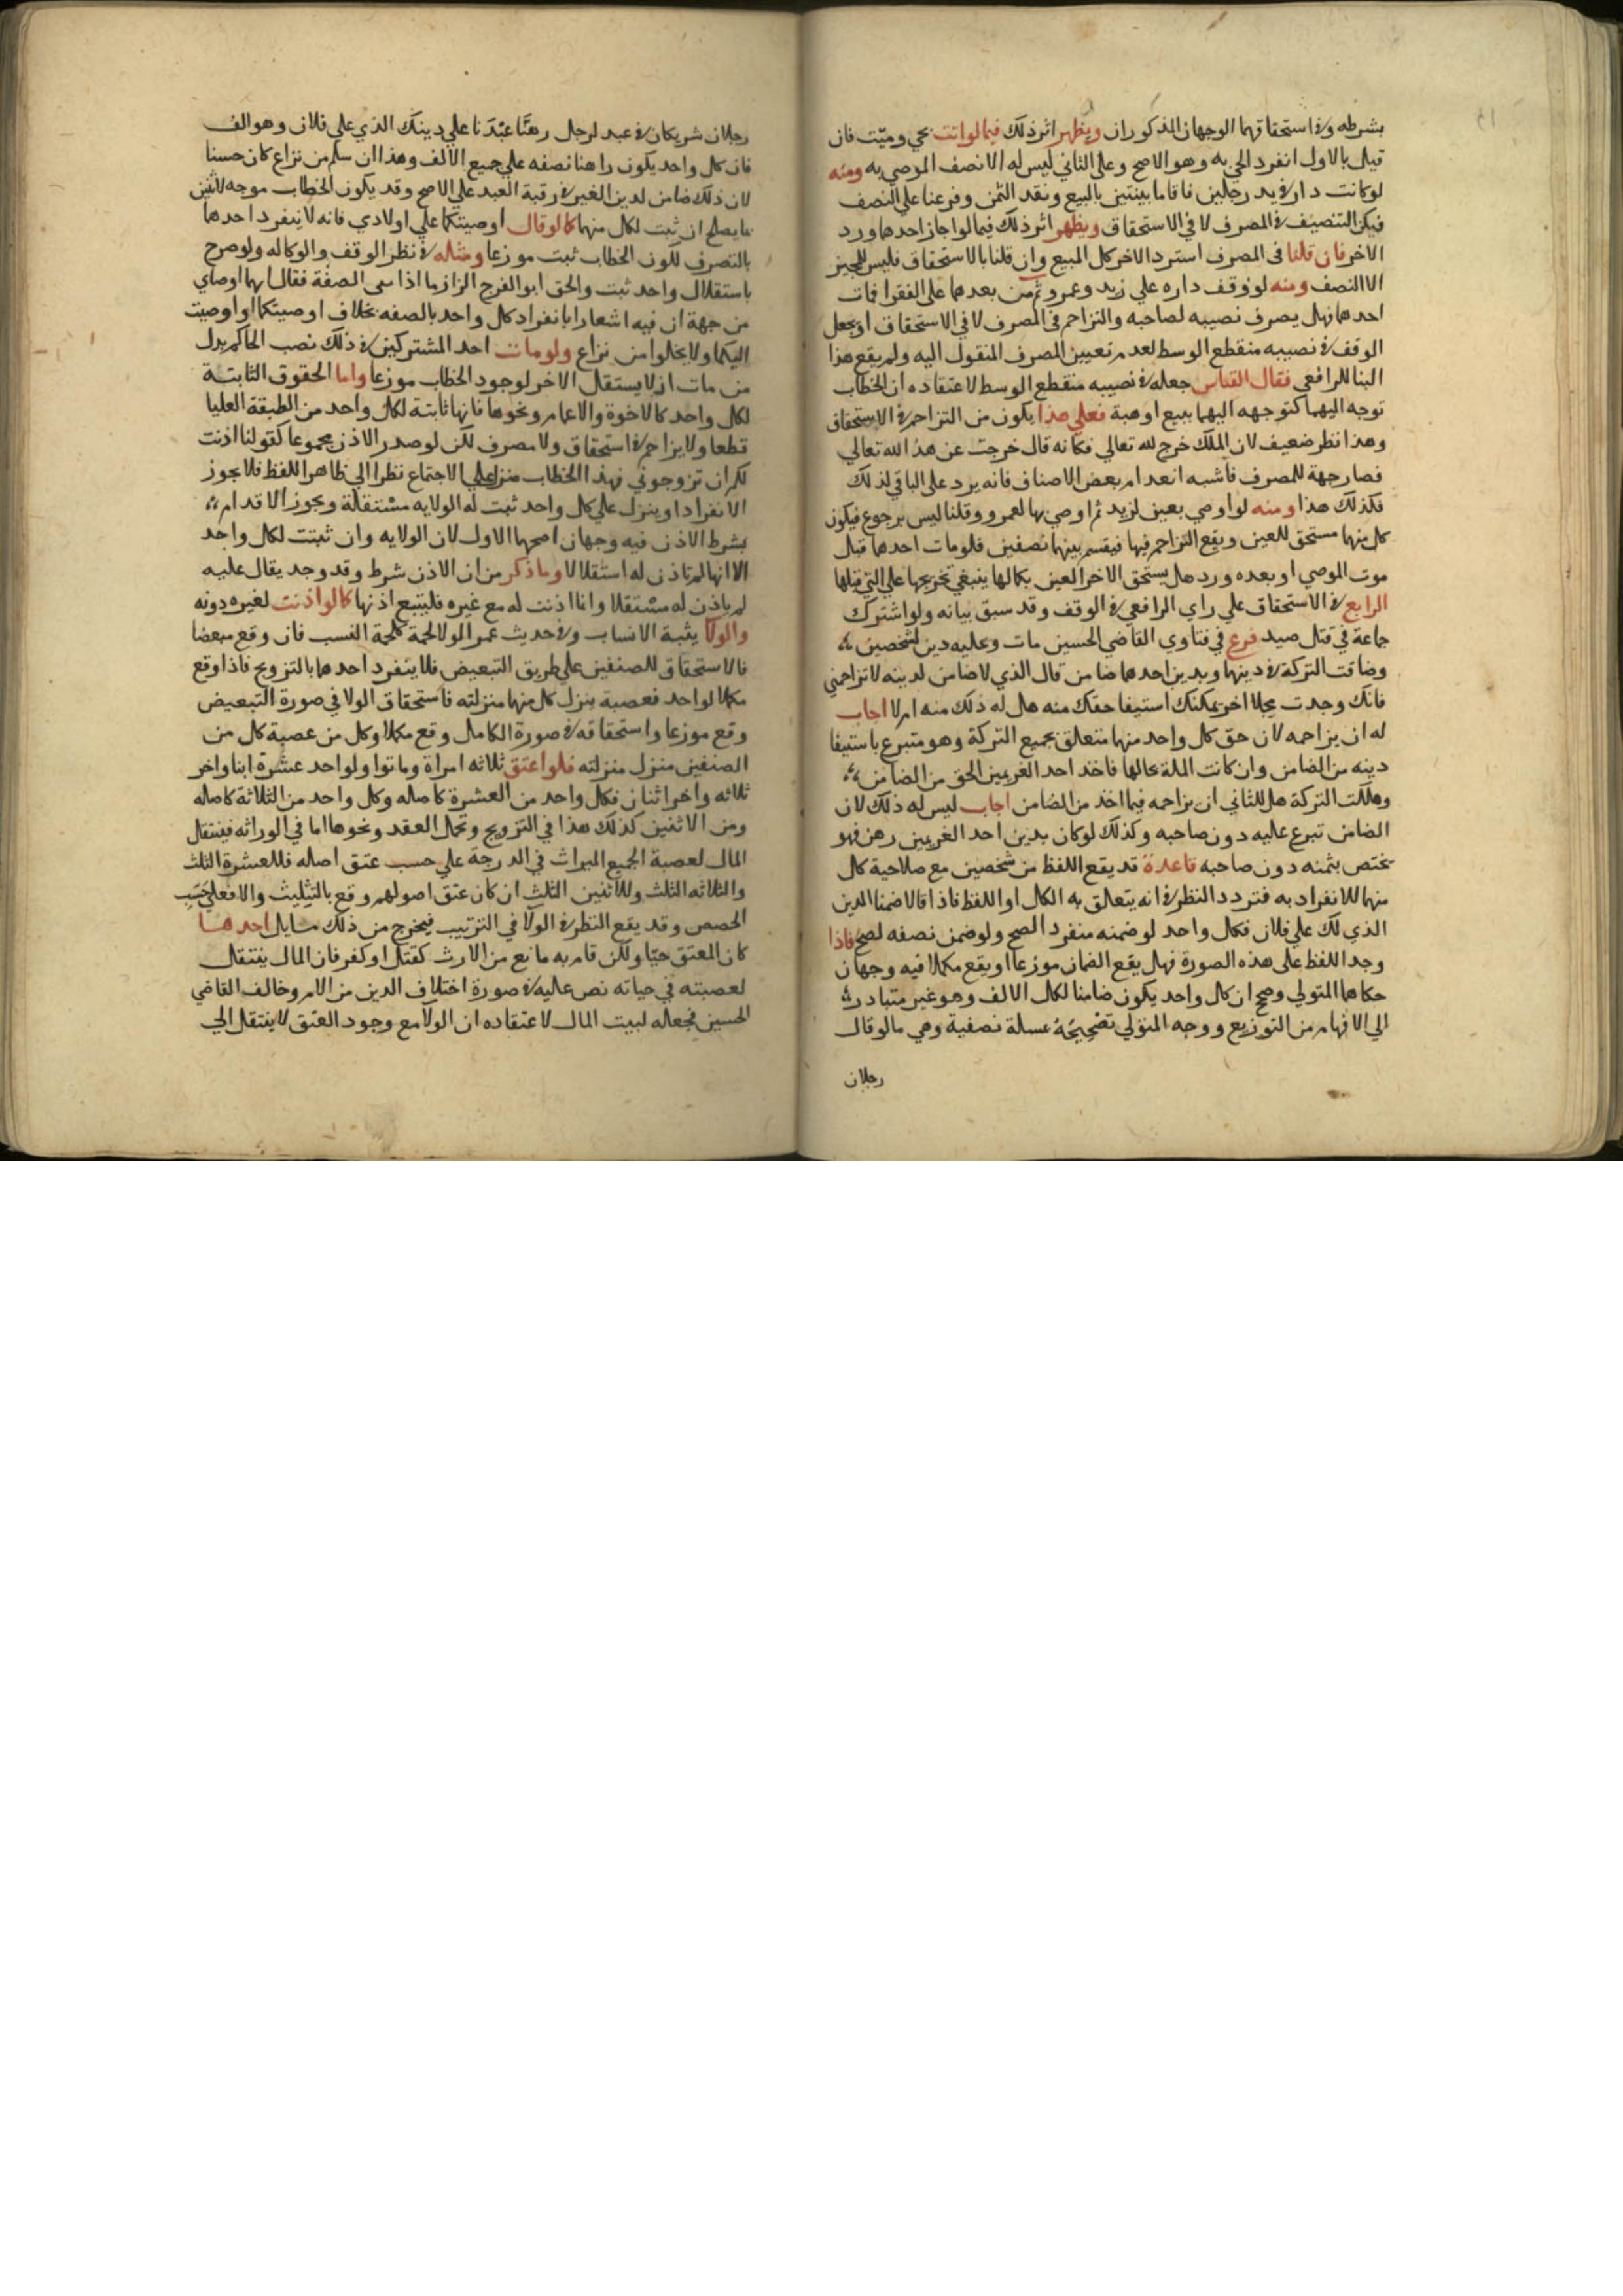 بشرطه وفي استحقاقهما الوجهان المذكوران ويظهر اثر ذلك فيما لو اتت بحي وميت فان
قيل بالاول انفرد الحي به وهو الاصح وعلى الثاني ليس له الا نصف الموصي به ومنه
لو كانت دار في يد رجلين فاقاما بينتين بالبيع ونقد الثمن وفرعنا علي النصف
فيكن التنصيف في المصرف لا في الاستحقاق ويظهر اثر ذلك فيما لو اجاز احدهما ورد
الاخر فان قلنا في المصرف استرد الاخر كل المبيع وان قلنا بالاستحقاق فليس للمجيز
الا النصف ومنه لو وقف داره علي زيد وعمرو ثم من بعدهما على الفقرا فمات
احدهما فهل يصرف نصيبه لصاحبه والتزاحم في المصرف لا في الاستحقاق او يجعل
الوقف في نصيبه منقطع الوسط لعدم تعيين المصرف المنقول اليه ولم يقع هذا
البنا للرافعي فقال القياس جعله في نصيبه منقطع الوسط لاعتقاده ان الخطاب
توجه اليهما كتوجهه اليهما ببيع او هبة فعلي هذا يكون من التزاحم في الاستحقاق
وهذا نظر ضعيف لان الملك خرج لله تعالي فكانه قال خرجت عن هذ الله تعالي
فصار جهة للمصرف فاشبه انعدام بعض الاصناف فانه يرد على الباقي لذلك
فكذلك هذا ومنه لو اوصي بعين لزيد ثم اوصي بها لعمرو وقلنا ليس برجوع فيكون
كل منهما مستحق للعين ويقع التزاحم فيها فيقسم بينهما نصفين فلو مات احدهما قبل
موت الموصي او بعده ورد هل يستحق الاخر العين بكمالها ينبغي تخريجها علي التي قبلها
الرابع في الاستحقاق علي راي الرافعي في الوقف وقد سبق بيانه ولو اشترك
جماعة في قتل صيد فرع في فتاوي القاضي الحسين مات وعليه دين لشخصين
وضاقت التركة في دينهما وبدين احدهما ضامن قال الذي لا ضامن لدينه لا تزاحمني
فانك وجدت محلا اخر يمكنك استيفا حقك منه هل له ذلك منه ام لا اجاب
له ان يزاحمه لان حق كل واحد منهما متعلق بجميع التركة وهو متبرع باستيفا
دينه من الضامن وان كانت المسلة بحالها فاخذ احد الغريمين الحق من الضامن
وهلكت التركة هل للثاني ان يزاحمه فيما اخذ من الضامن اجاب ليس له ذلك لان
الضامن تبرع عليه دون صاحبه وكذلك لو كان بدين احد الغريمين رهن فهو
يختص بثمنه دون صاحبه قاعدة قد يقع اللفظ من شخصين مع صلاحية كل
منهما للانفراد به فتردد النظر في انه يتعلق به الكل او اللفظ فاذا قالا ضمنا الدين
الذي لك علي فلان فكل واحد لو ضمنه منفردا لصح ولو ضمن نصفه لصح فاذا
وجد اللفظ على هذه الصورة فهل يقع الضمان موزعا او يقع مكملا فيه وجهان
حكاهما المتولي وصحح ان كل واحد يكون ضامنا لكل الالف وهو غير متبادر
الي الافهام من التوزيع ووجه المتولي تصحيحه بمسلة نصفية وهي ما لو قال
رجلان
رجلان شريكان في عبد لرجل رهنا عبدنا علي دينك الذي علي فلان وهو الف
فان كل واحد يكون راهنا نصفه علي جميع الالف وهذا ان سلم من نزاع كان حسنا
لان ذلك ضامن لدين الغير في رقبة العبد علي الاصح وقد يكون الخطاب موجه لاثنين
بما يصلح ان يثبت لكل منهما كما لو قال اوصيتكما علي اولادي فانه لا ينفرد احدهما
بالتصرف لكون الخطاب ثبت موزعا ومثله في نظر الوقف والوكاله ولو صرح
باستقلال واحد ثبت والحق ابو الفرج الزاز بما اذا سمى الصفة فقال انهما اوصياي
من جهة ان فيه اشعارا بانفراد كل واحد بالصفه بخلاف اوصيتكما او اوصيت
اليكما ولا يخلوا من نزاع ولو مات احد المشتركين في ذلك نصب الحاكم بدل
من مات اذ لا يستقل الاخر لوجود الخطاب موزعا واما الحقوق الثابتة
لكل واحد كالاخوة والاعمام ونحوها فانها ثابتة لكل واحد من الطبقة العليا
قطعا ولا يزاحم في استحقاق ولا مصرف لكن لو صدر الاذن مجموعا كقولنا اذنت
لكم ان تزوجوني فهذا الخطاب منزل علي الاجتماع نظرا الي ظاهر اللفظ فلا يجوز
الانفراد او ينزل علي كل واحد ثبت له الولايه مستقلة ويجوز الاقدام
بشرط الاذن فيه وجهان اصحهما الاول لان الولايه وان ثبتت لكل واحد
الا انها لم تاذن له استقلالا وما ذكر من ان الاذن شرط وقد وجد يقال عليه
لم ياذن له مستقلا وانما اذنت له مع غيره فليتبع اذنها كما لو اذنت لغيره دونه
والولا يشبه الانساب وفي حديث عمر الولا لحمة كلحمة النسب فان وقع مبعضا
فالاستحقاق للصنفين علي طريق التبعيض فلا ينفرد احدهما بالتزويج فاذا وقع
مكملا لواحد فعصبة ينزل كل منهما منزلته فاستحقاق الولا في صورة التبعيض
وقع موزعا واستحقاقه في صورة الكامل وقع مكملا وكل من عصبة كل من
الصنفين منزل منزلته فلو اعتق ثلاثه امراة وماتوا ولواحد عشرة ابنا واخر
ثلاثه واخر اثنان فكل واحد من العشرة كاصله وكل واحد من الثلاثة كاصله
ومن الاثنين كذلك هذا في التزويج وتحمل العقد ونحوها اما في الوراثه فينتقل
المال لعصبة الجميع الميراث في الدرجة علي حسب عتق اصله فللعشرة الثلث
والثلاثه الثلث وللاثنين الثلث ان كان عتق اصولهم وقع بالتثليث والا فعلي حسب
الحصص وقد يقع النظر في الولا في الترتيب فيخرج من ذلك مسايل احدها
كان المعتق حيا ولكن قام به مانع من الارث كقتل او كفر فان المال ينتقل
لعصبته في حياته نص عليه في صورة اختلاف الدين من الام وخالف القاضي
الحسين فجعله لبيت المال لاعتقاده ان الولا مع وجود العتق لا ينتقل الي